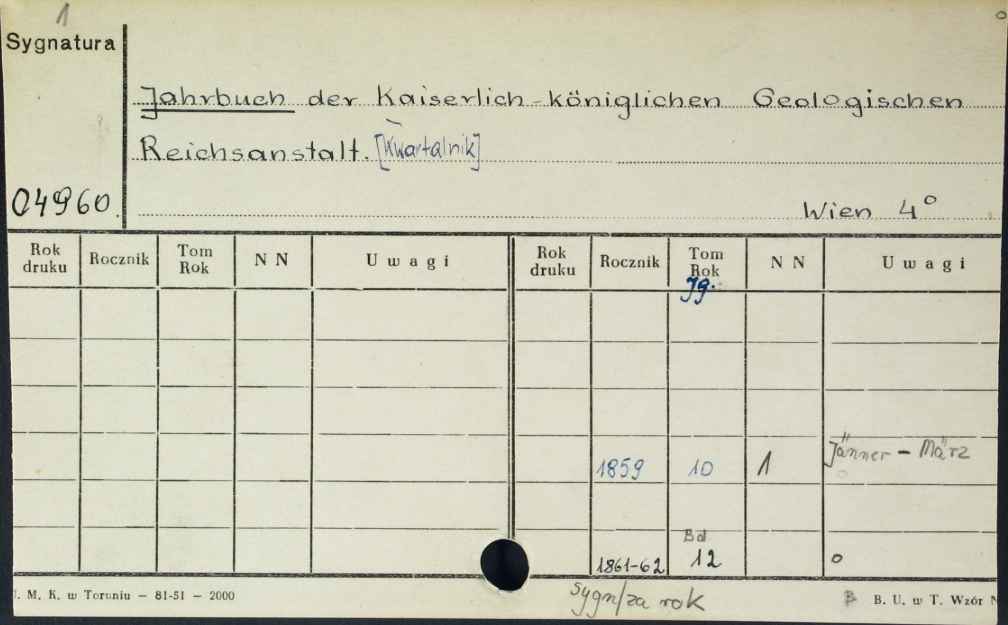 1
Sygnatura
Jahrbuch der Kaiserlich-königlichen Geologischen
Reichsanstalt. [Kwartalnik]
04960.
Wien 4°
Rok druku Rocznik Tom Rok NN Uwagi Rok druku Rocznik Tom Rok NN Uwagi
Jg.
1859 10 1 Jänner - März
Bd
1861-62 12 o
U. M. K. w Toruniu - 81-51 - 2000
sygn/za rok
B B. U. w T. Wzór N